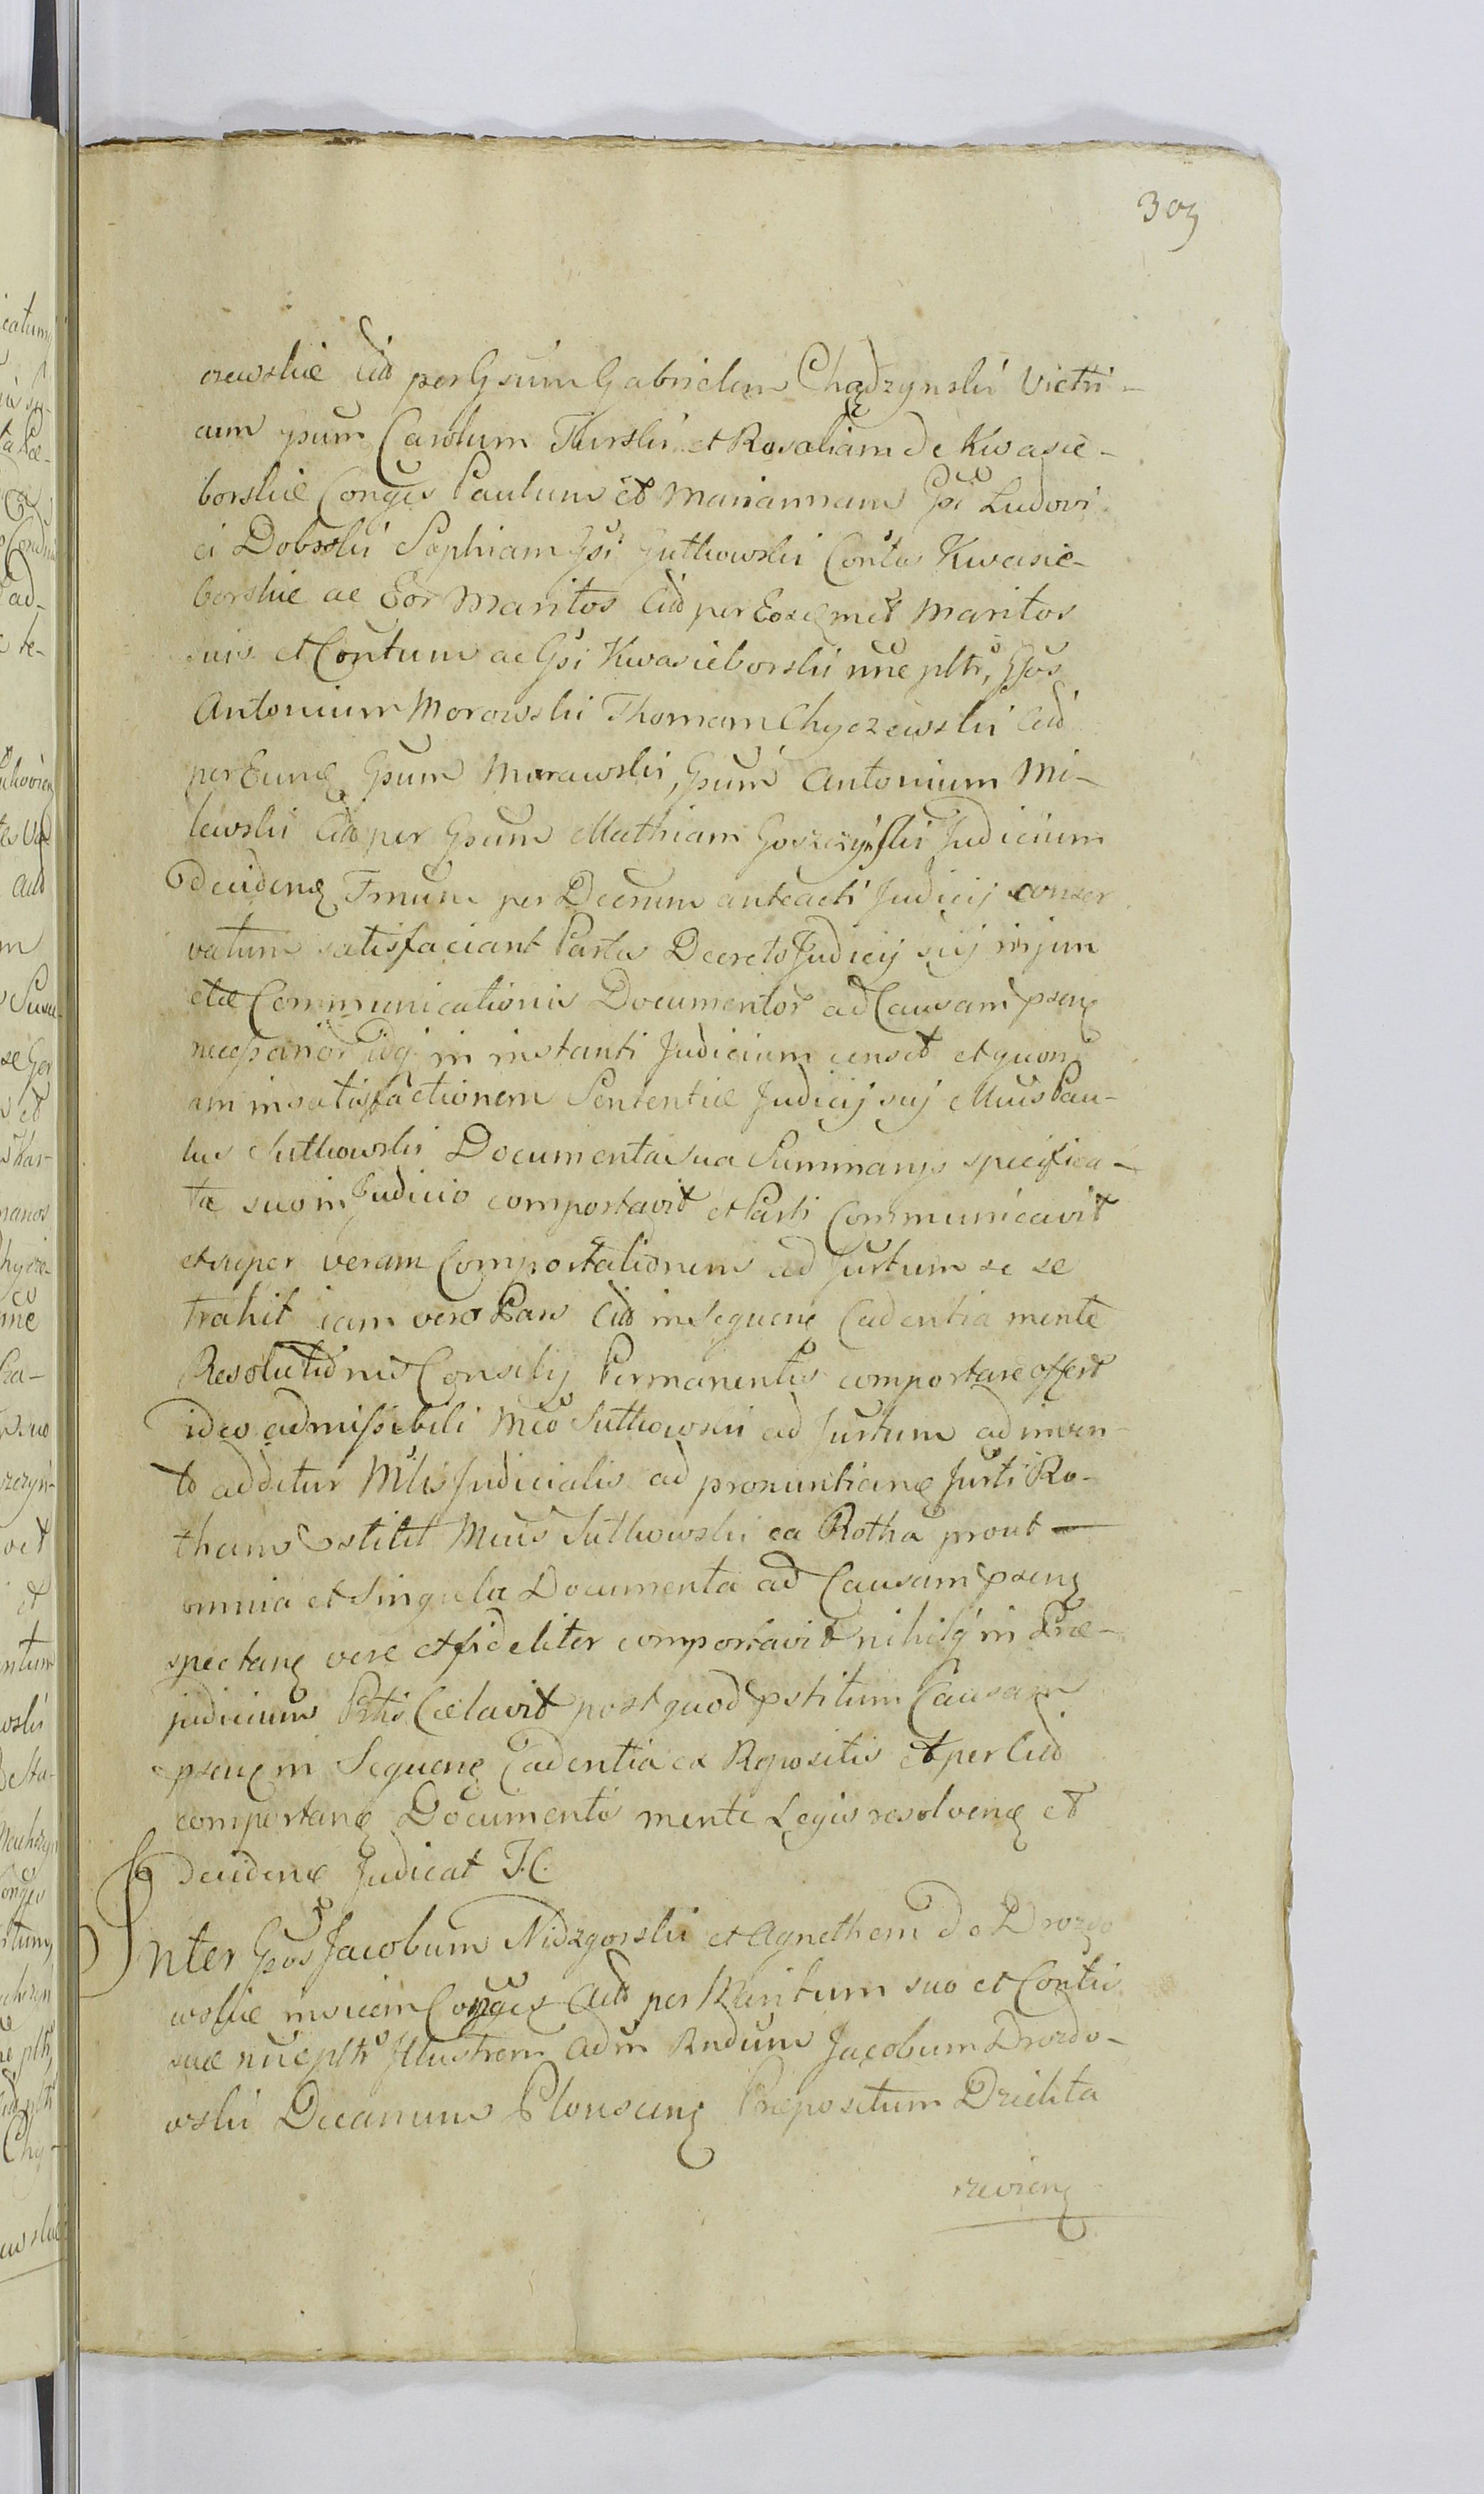 303
czewskie Citt per Gsum Gabrielem Chądzynski Victri-
cum gsum Carolum Turski et Rosaliam de Kwasie-
borskie Conges Paulum et Mariannam Gsi Ludovi
ci Dobrski Sophiam Gsi Gutkowski Contes Kwasie-
borskie ac Eor Maritos Citt per Eosemet Maritos
suis et Contum ac Gsi Kwasieborski nne pltr, Gsos
Antonium Morawski Thomam Chyczewski Citt
per Eunę Gsum Morawski, Gsum Antonium Mi-
lewski Citt per Gsum Mathiam Goszczynski Judicium
decidenę Trnum per Decrum anteacti Judicij conser
vatum satisfaciant Partes Decreto Judicij sij injun
ctæ Communicationis Documentor ad Causam psenę
necessarior idq in instanti Judicium censet et quoni
am in satisfactionem Sententiæ Judicij sij Mcus Pau-
lus Sutkowski Documenta sua Summarys specifica-
ta suo in Judicio comportavit et Parti Communicavit
et super veram Comportationem ad Jurtum se se
trahit iam vero Pars Citt in Sequenę Cadentia mente
Resolutionis Consilij Permanentis comportare offert
ideo admissibili Mco Sutkowski ad Jurtum ad inven-
to additur Mtlis Judicialis ad pronuntianę Jurti Ro-
tham stitit Mcus Sutkowski ea Rotha prout —
omnia et Singula Documenta ad Causam psenę
spectanę vere et fideliter comportavit nihilq in Præ-
judicium Prtis Cælavit post quod pstitum Causam
psenę in Sequenę Cadentia ex Repositis et per Citt
comportanę Documentis mente Legis resolvenę et
decidenę Judicat J.C.
Inter Gsos Jacobum Nidzgorski et Agnethem de Drozdo
wskie invicem Conges Actt per Maritum suo et Contis
suæ nne pltr Illustrem Adm Rndum Jacobum Drozdo-
wski Decanum Plonscenę Præpositum Dziekta
rzevienę